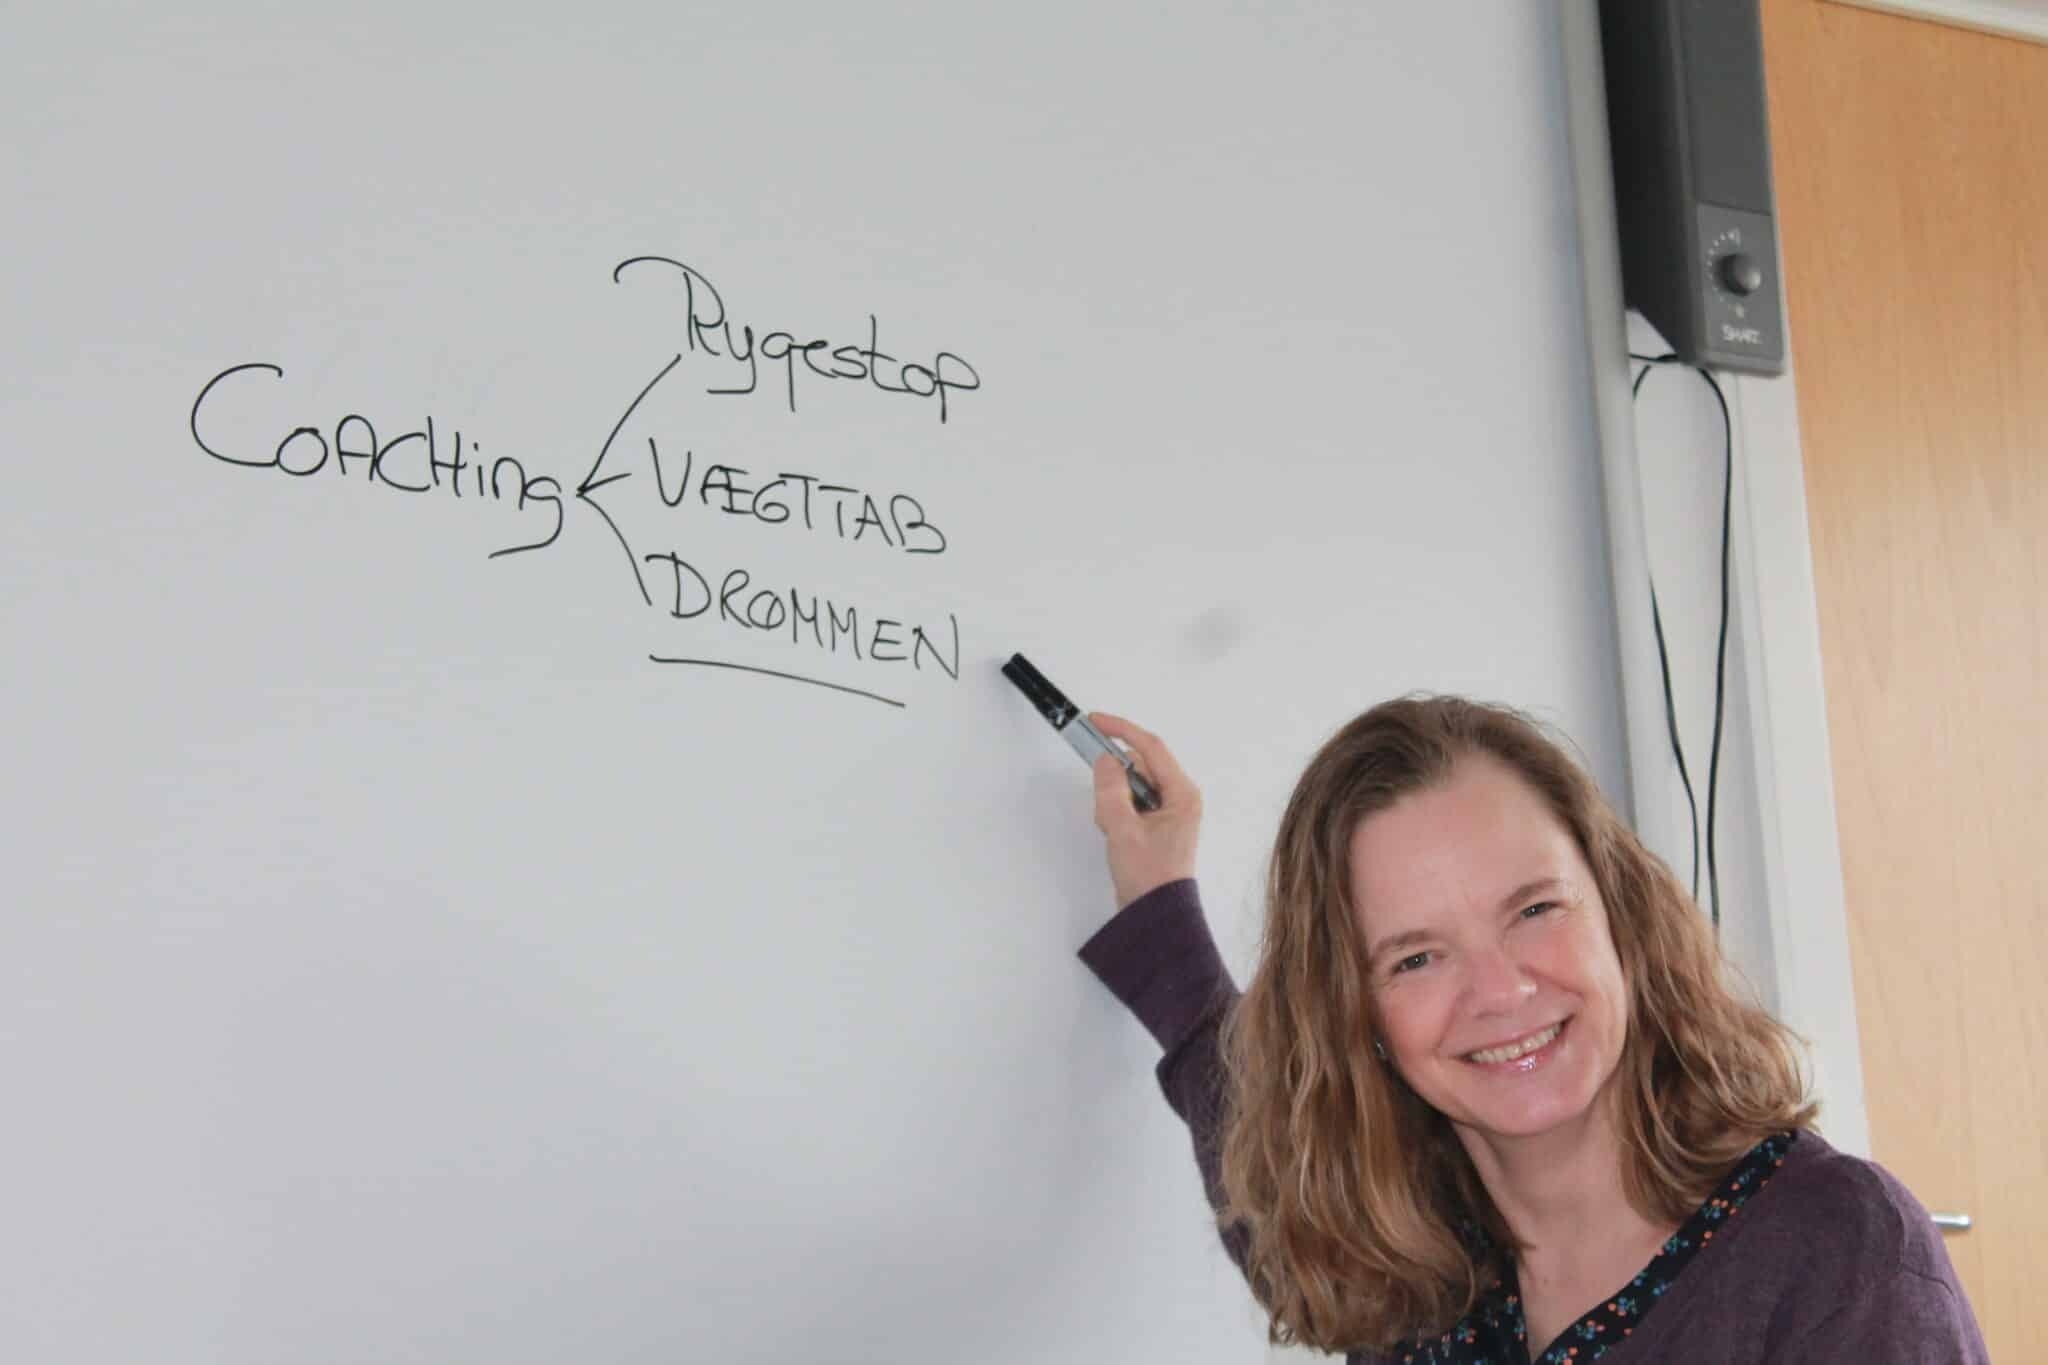 Rygestop
COACHing
VÆGTTAB
DRØMMEN
SMART